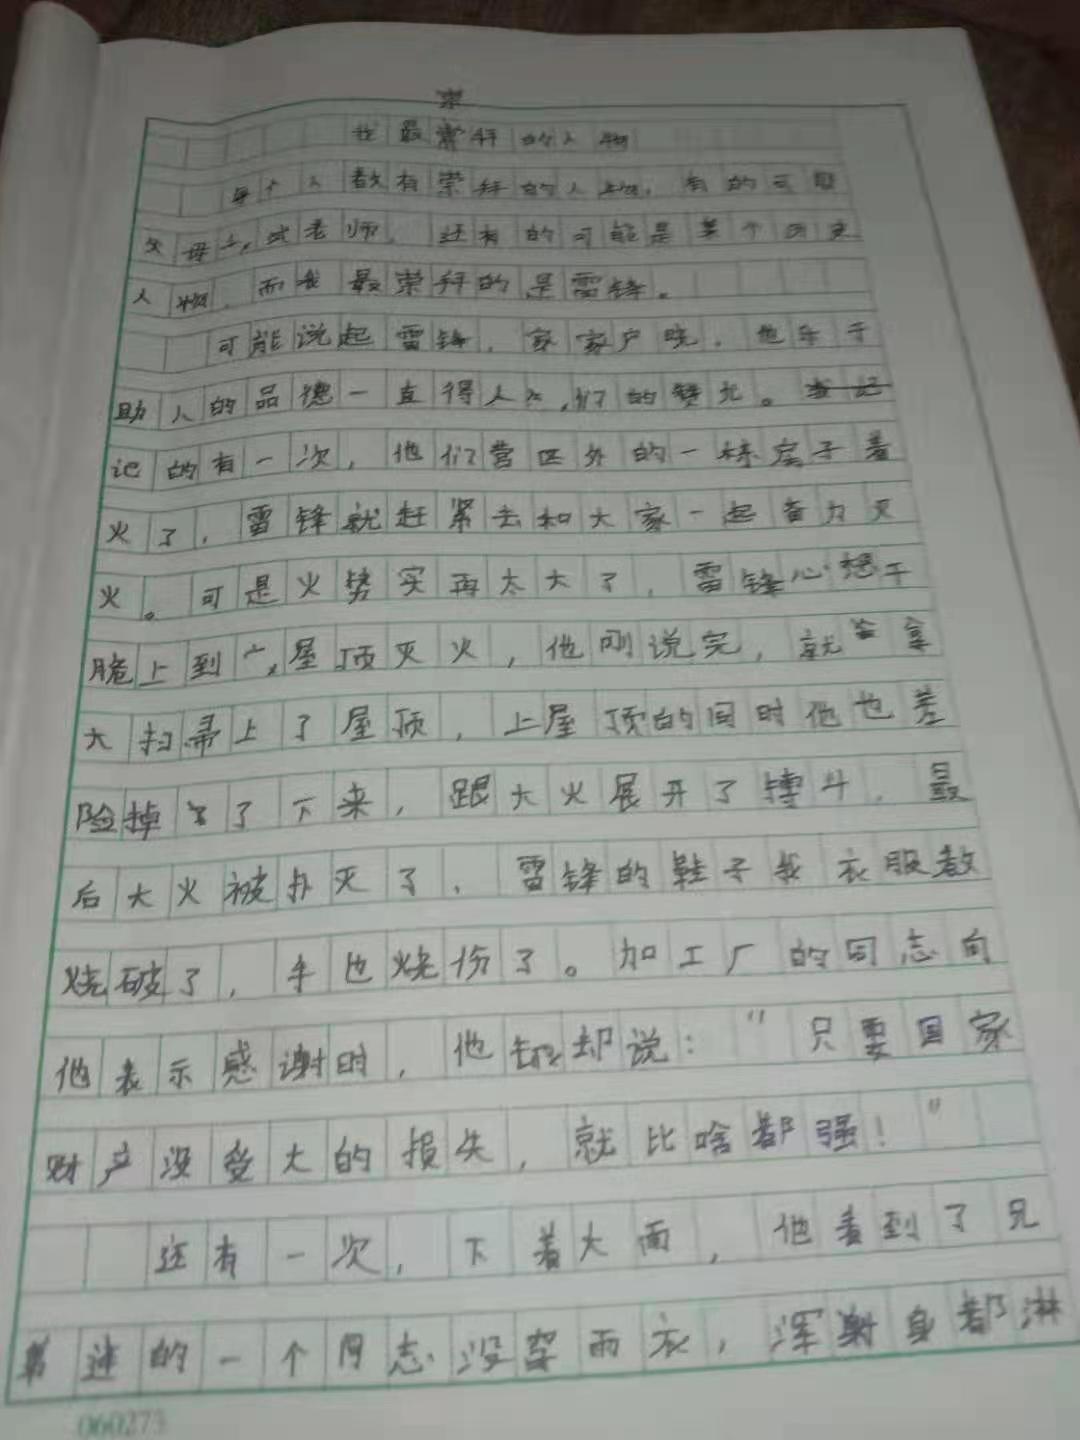 崇
我最崇拜的人物
每个人都有崇拜的人物,有的可
父母,或老师,还有的可能是某个历史
人物,而我最崇拜的是雷锋。
可能说起雷锋,家家户晓,他乐于
助人的品德一直得人们的赞尤。
记的有一次,他们营区外的一栋房子着
火了,雷锋就赶紧去和大家一起奋力灭
火。可是火势实再太大了,雷锋心想干
脆上到屋顶灭火,他刚说完,就拿
大扫帚上了屋顶,上屋顶的同时他也差
险掉了下来,跟大火展开了搏斗,最
后大火被扑灭了,雷锋的鞋子和衣服都
烧破了,手也烧伤了。加工厂的同志向
他表示感谢时,他却说:"只要国家
财产没受大的损失,就比啥都强!"
还有一次,下着大雨,他看到了兄
弟连的一个同志没穿雨衣,浑身都淋
060273